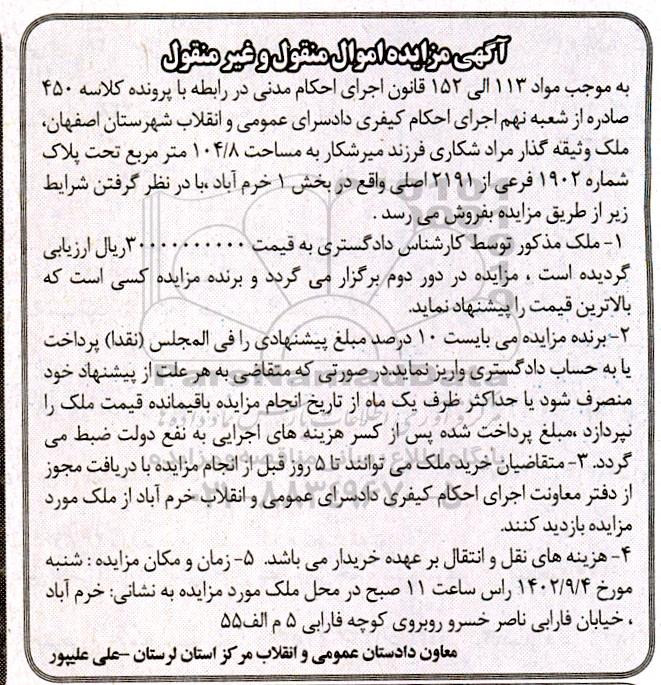 آگهی مزایده اموال منقول و غیر منقول
به موجب مواد ۱۱۳ الی ۱۵۲ قانون اجرای احکام مدنی در رابطه با پرونده کلاسه ۴۵۰
صادره از شعبه نهم اجرای احکام کیفری دادسرای عمومی و انقلاب شهرستان اصفهان،
ملک وثیقه گذار مراد شکاری فرزند میرشکار به مساحت ۱۰۴/۸ متر مربع تحت پلاک
شماره ۱۹۰۲ فرعی از ۲۱۹۱ اصلی واقع در بخش ۱ خرم آباد ،با در نظر گرفتن شرایط
زیر از طریق مزایده بفروش می رسد .
۱- ملک مذکور توسط کارشناس دادگستری به قیمت ۳۰۰۰۰۰۰۰۰۰۰ریال ارزیابی
گردیده است ، مزایده در دور دوم برگزار می گردد و برنده مزایده کسی است که
بالاترین قیمت را پیشنهاد نماید.
۲- برنده مزایده می بایست ۱۰ درصد مبلغ پیشنهادی را فی المجلس (نقدا) پرداخت
یا به حساب دادگستری واریز نماید.در صورتی که متقاضی به هر علت از پیشنهاد خود
منصرف شود یا حداکثر ظرف یک ماه از تاریخ انجام مزایده باقیمانده قیمت ملک را
نپردازد ،مبلغ پرداخت شده پس از کسر هزینه های اجرایی به نفع دولت ضبط می
گردد. ۳- متقاضیان خرید ملک می توانند تا ۵ روز قبل از انجام مزایده با دریافت مجوز
از دفتر معاونت اجرای احکام کیفری دادسرای عمومی و انقلاب خرم آباد از ملک مورد
مزایده بازدید کنند.
۴- هزینه های نقل و انتقال بر عهده خریدار می باشد. ۵- زمان و مکان مزایده : شنبه
مورخ ۱۴۰۲/۹/۴ راس ساعت ۱۱ صبح در محل ملک مورد مزایده به نشانی: خرم آباد
، خیابان فارابی ناصر خسرو روبروی کوچه فارابی ۵ م الف۵۵
معاون دادستان عمومی و انقلاب مرکز استان لرستان –علی علیپور